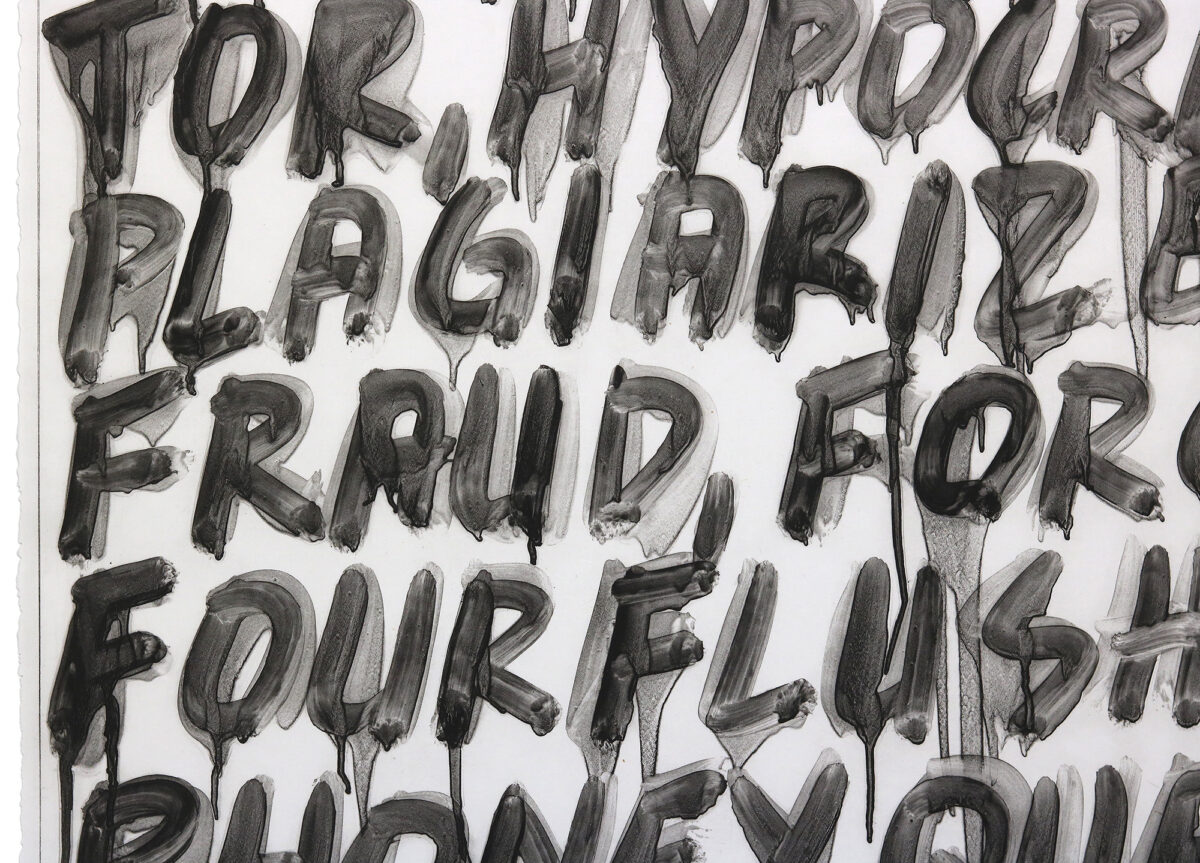 TOR, HYPOCR
PLAGIARIZE
FRAUD, FOR
FOURFLUSH
PHONEY